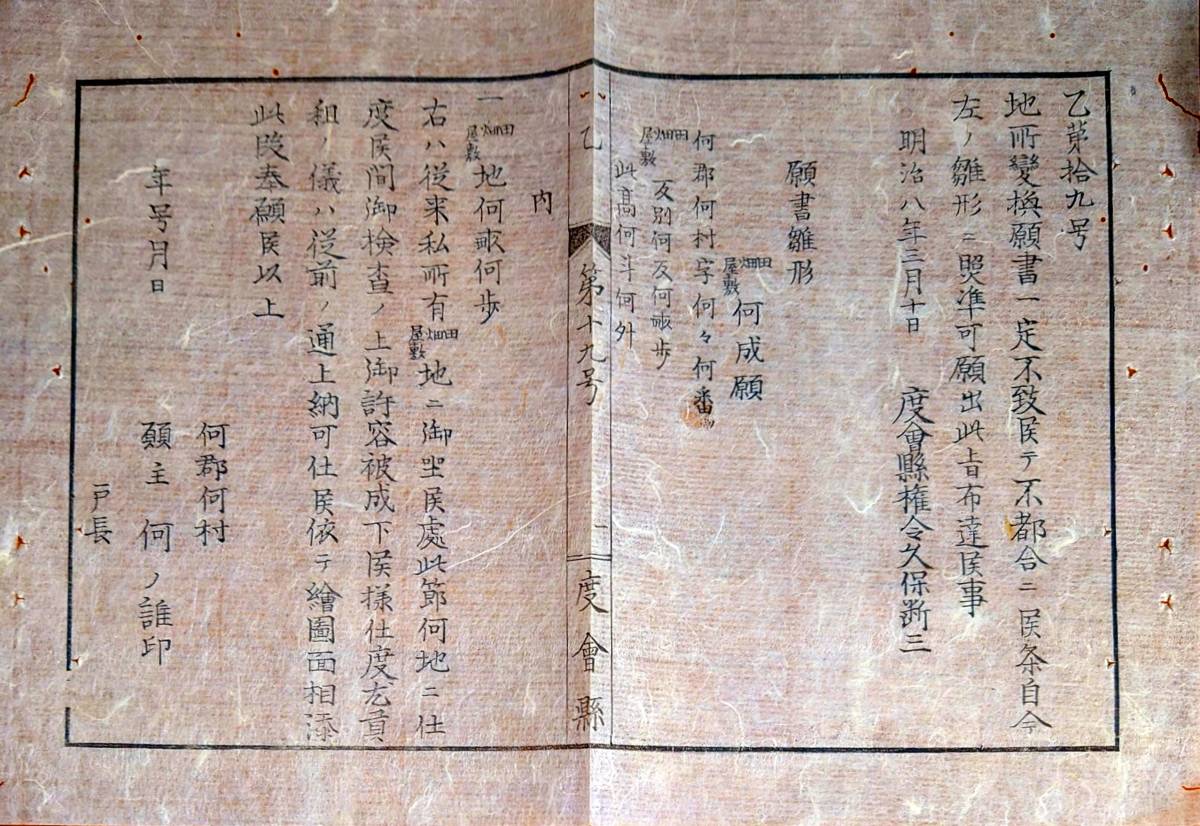 乙第拾九号
地所變換願書一定不致候テ不都合ニ候条自今
左ノ雛形ニ照準可願出此旨布達候事
明治八年三月十日　度會縣権令久保断三
願書雛形
田畑屋敷何成願
何郡何村字何々何番
田畑屋敷反別何反何畝歩
此高何斗何外
乙　第十九号　度會縣
内
一田畑屋敷地何畝何歩
右ハ従来私所有田畑屋敷地ニ御坐候處此節何地ニ仕
度候間御検査ノ上御許容被成下候様仕度尤貢
租ノ儀ハ従前ノ通上納可仕候依テ繪圖面相添
此段奉願候以上
年号月日
何郡何村
願主　何ノ誰印
戸長